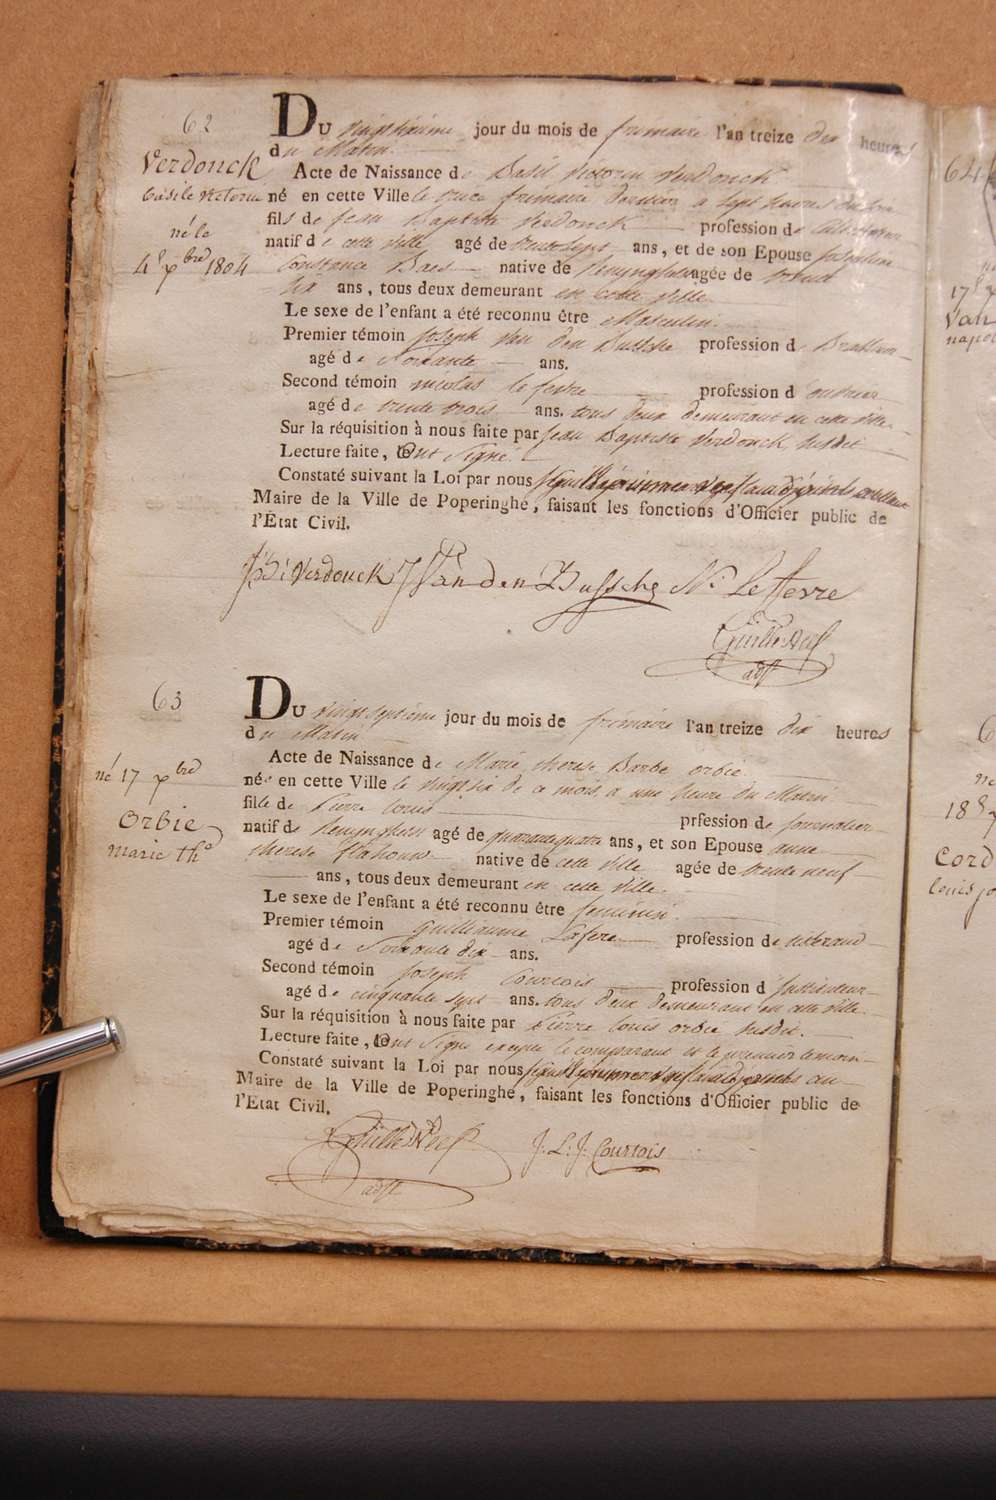 62
Verdonck
Basile Victorin
né le
4 xbre 1804
Du vingtsixième jour du mois de frimaire l'an treize dix heures
du Matin.
Acte de Naissance de Basil Victorin Verdonck
né en cette Ville le frimaire dernier a sept heures du
fils de Jean Baptiste Verdonck profession de
natif de cette ville agé de trentesept ans, et de son Epouse
Constance Baes native de Reninghelst agée de trent
six ans, tous deux demeurant en cette ville
Le sexe de l'enfant a été reconnu être Masculin.
Premier témoin Joseph Van den Bussche profession de Brasseur
agé de Soixante ans.
Second témoin nicolas le fevre profession d
agé de trente trois ans. tous deux demeurant en cette ville
Sur la réquisition à nous faite par Jean Baptiste Verdonck susdit
Lecture faite, ont Signé.
Constaté suivant la Loi par nous
Maire de la Ville de Poperinghe, faisant les fonctions d'Officier public de
l'État Civil.
J: B: Verdonck J Van den Bussche N: Le ffevre
adjt
63
né 17 xbre
Orbie
marie thé
Du vingtseptième jour du mois de frimaire l'an treize dix heures
du Matin
Acte de Naissance de Marie therese Barbe orbie
née en cette Ville le vingtsix de ce mois, a une heure du Matin
fille de Pierre Louis prfession de journalier
natif de Reninghelst agé de quarantequatre ans, et son Epouse anne
therese native dé cette ville agée de trente neuf
ans, tous deux demeurant en cette ville.
Le sexe de l'enfant a été reconnu être feminin.
Premier témoin Guilliaume Lafere profession de
agé de Soixante dix ans.
Second témoin Joseph Courtois profession d'Instituteur
agé de cinquante sept ans. tous deux demeurant en cette ville
Sur la réquisition à nous faite par Pierre Louis orbie susdit.
Lecture faite, ont Signé excepté le comparant et le premier temoin
Constaté suivant la Loi par nous
Maire de la Ville de Poperinghe, faisant les fonctions d'Officier public de
l'Etat Civil.
J. L. J. Courtois
adjt
64
17
Van
napol
né
18
Cord
louis jo